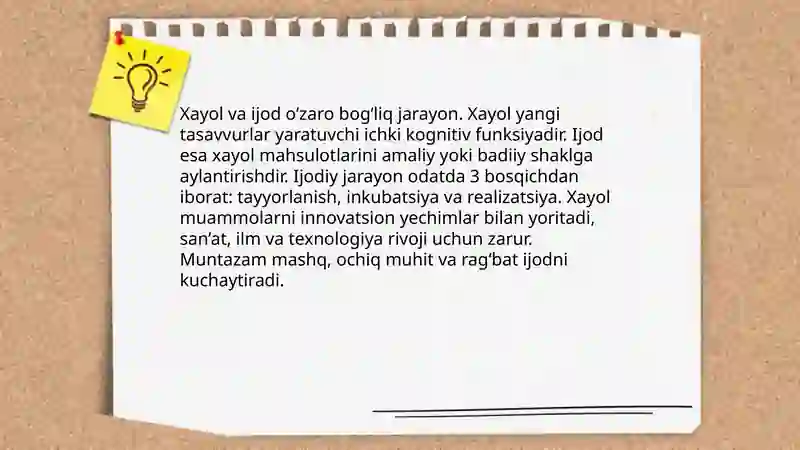 Xayol va ijod o‘zaro bog‘liq jarayon. Xayol yangi
tasavvurlar yaratuvchi ichki kognitiv funksiyadir. Ijod
esa xayol mahsulotlarini amaliy yoki badiiy shaklga
aylantirishdir. Ijodiy jarayon odatda 3 bosqichdan
iborat: tayyorlanish, inkubatsiya va realizatsiya. Xayol
muammolarni innovatsion yechimlar bilan yoritadi,
san’at, ilm va texnologiya rivoji uchun zarur.
Muntazam mashq, ochiq muhit va rag‘bat ijodni
kuchaytiradi.